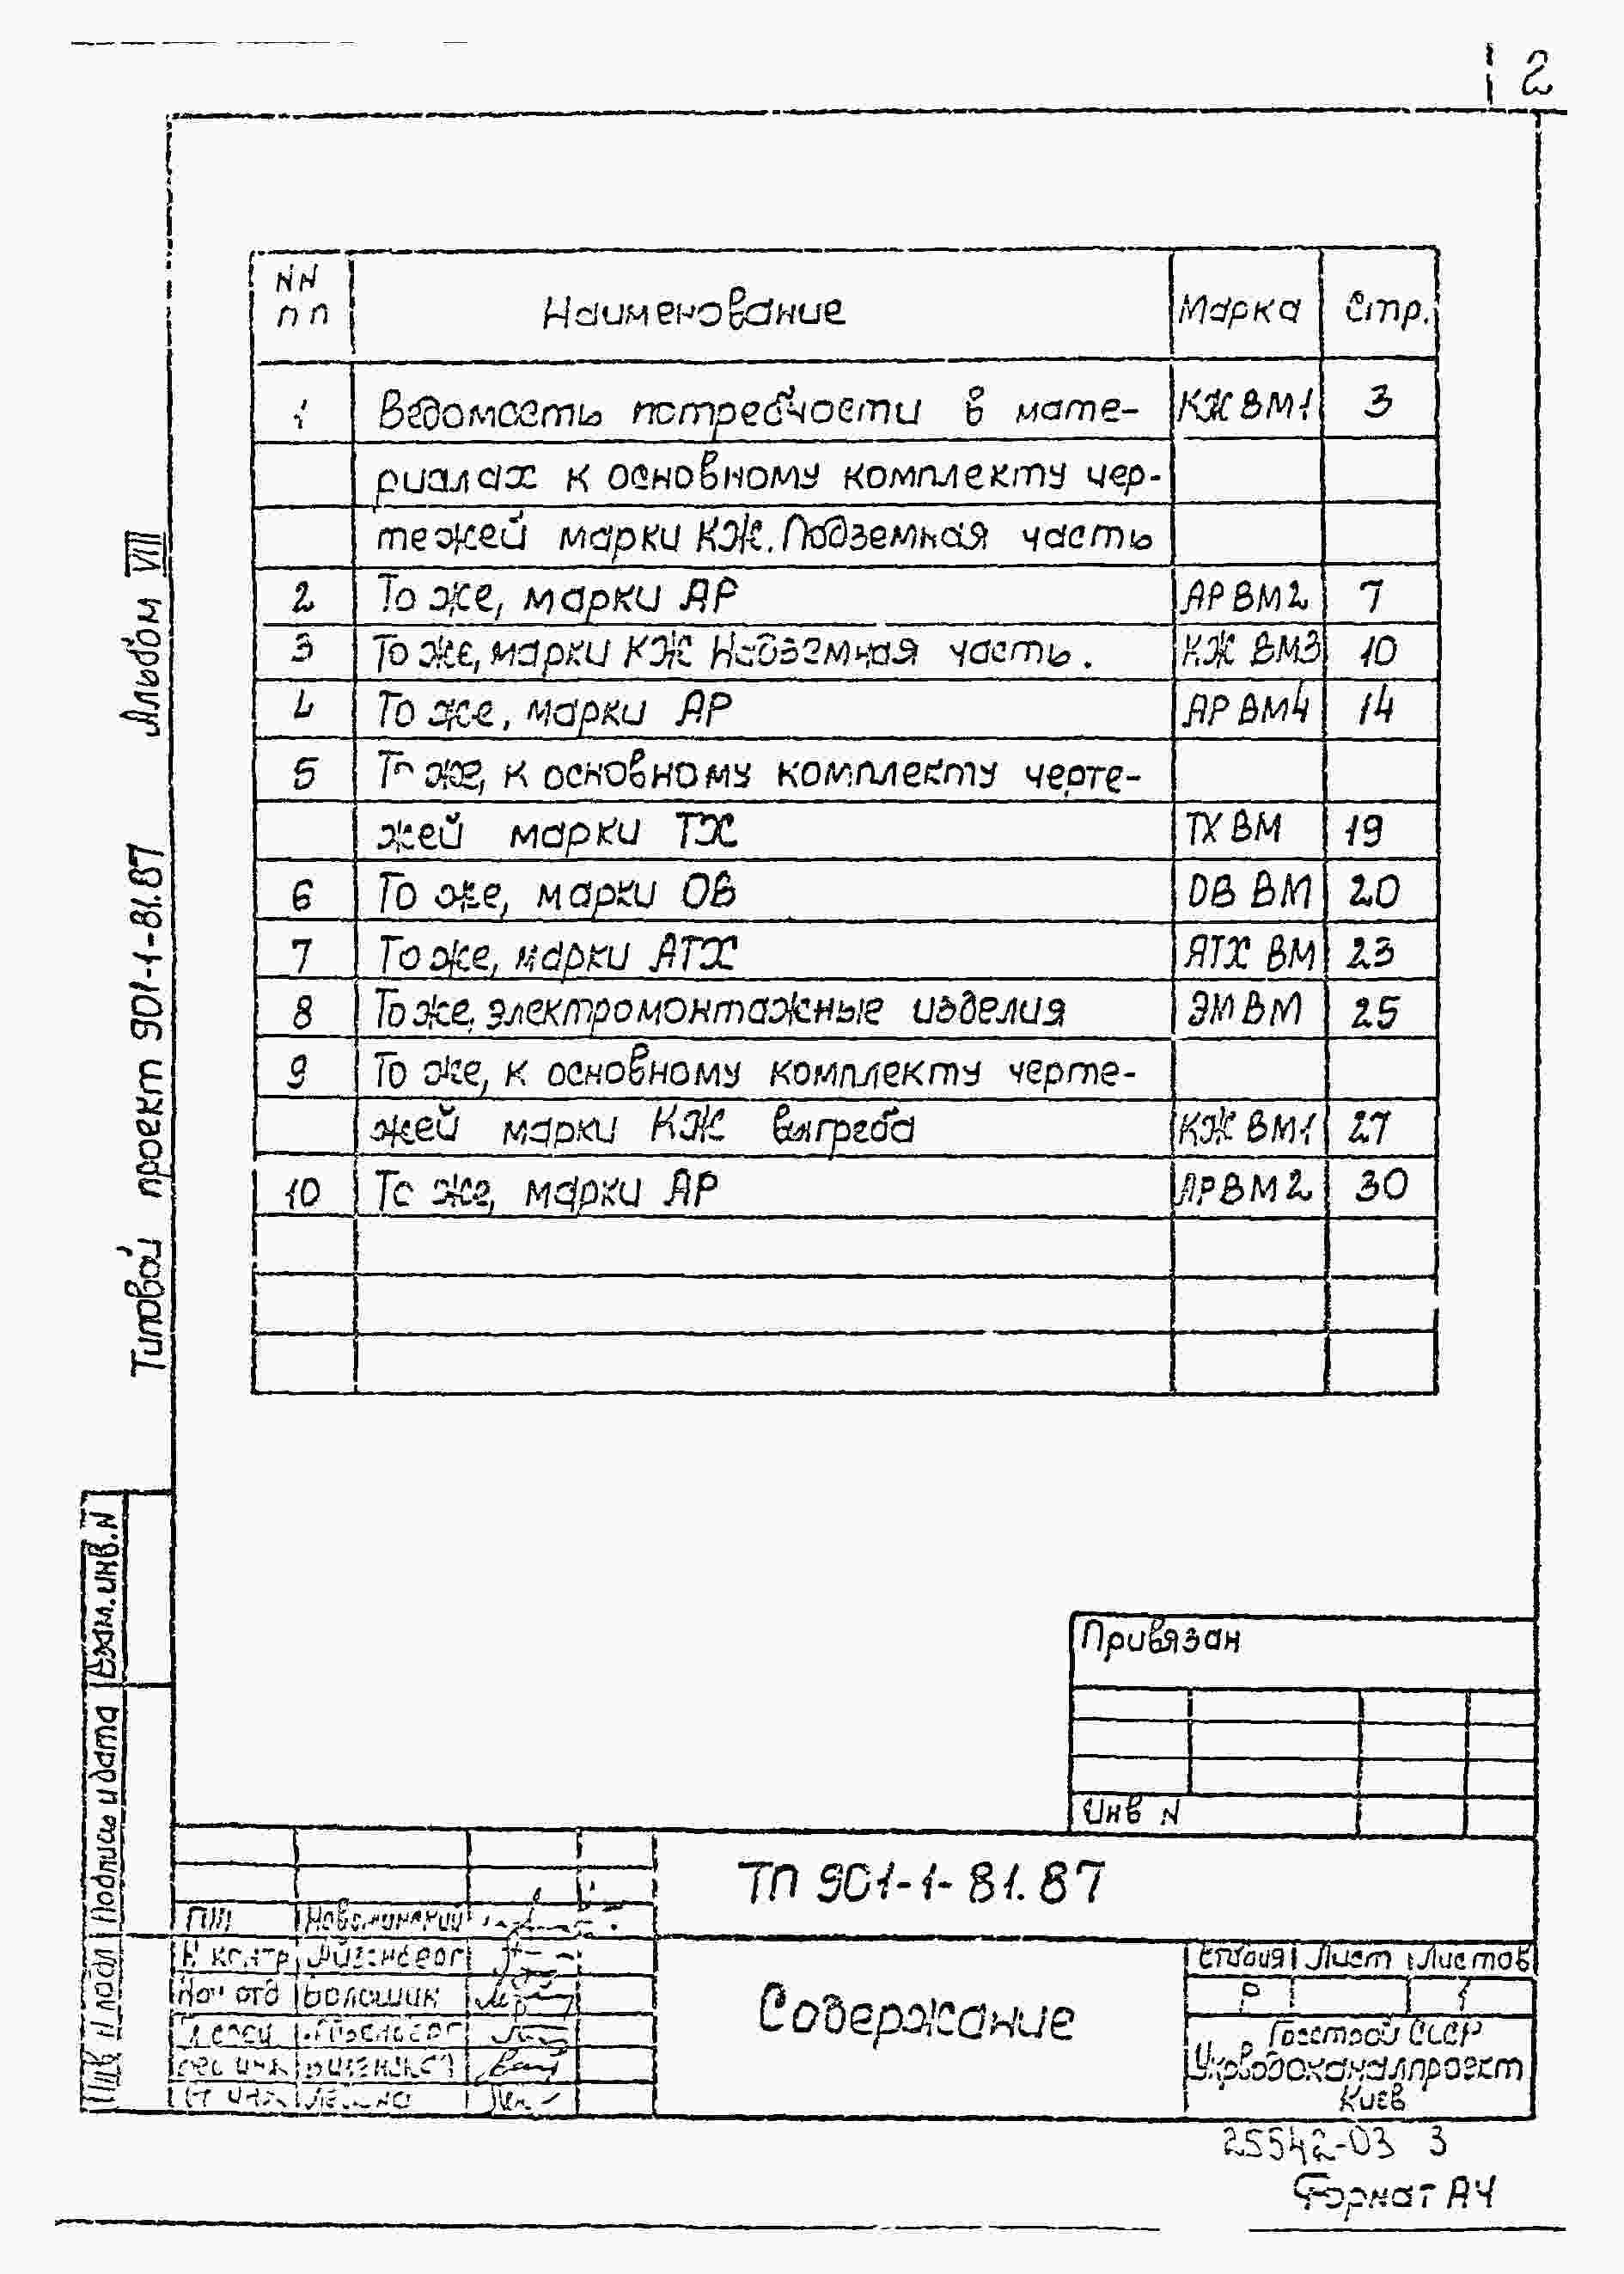 2
NN
пп
Наименование
Марка
Стр.
1 Ведомость потребности в мате- КЖ ВМ1 3
риалах к основному комплекту чер-
тежей марки КЖ. Подземная часть
2 То же, марки АР АР ВМ2 7
3 То же, марки КЖ Надземная часть. КЖ ВМ3 10
4 То же, марки АР АР ВМ4 14
5 То же, к основному комплекту черте-
жей марки ТХ ТХ ВМ 19
6 То же, марки ОВ ОВ ВМ 20
7 То же, марки АТХ АТХ ВМ 23
8 То же, электромонтажные изделия ЭМ ВМ 25
9 То же, к основному комплекту черте-
жей марки КЖ выгреба КЖ ВМ1 27
10 То же, марки АР АР ВМ2 30
Типовой проект 901-1-81.87 Альбом VIII
Взам. инв. N
Подпись и дата
Инв N подл
Привязан
Инв N
ТП 901-1-81.87
ГИП
Н контр
Нач отд Волошин
Содержание
Стадия Лист Листов
Р 1
Госстрой СССР
Укрводоканалпроект
Киев
25542-03 3
Формат А4